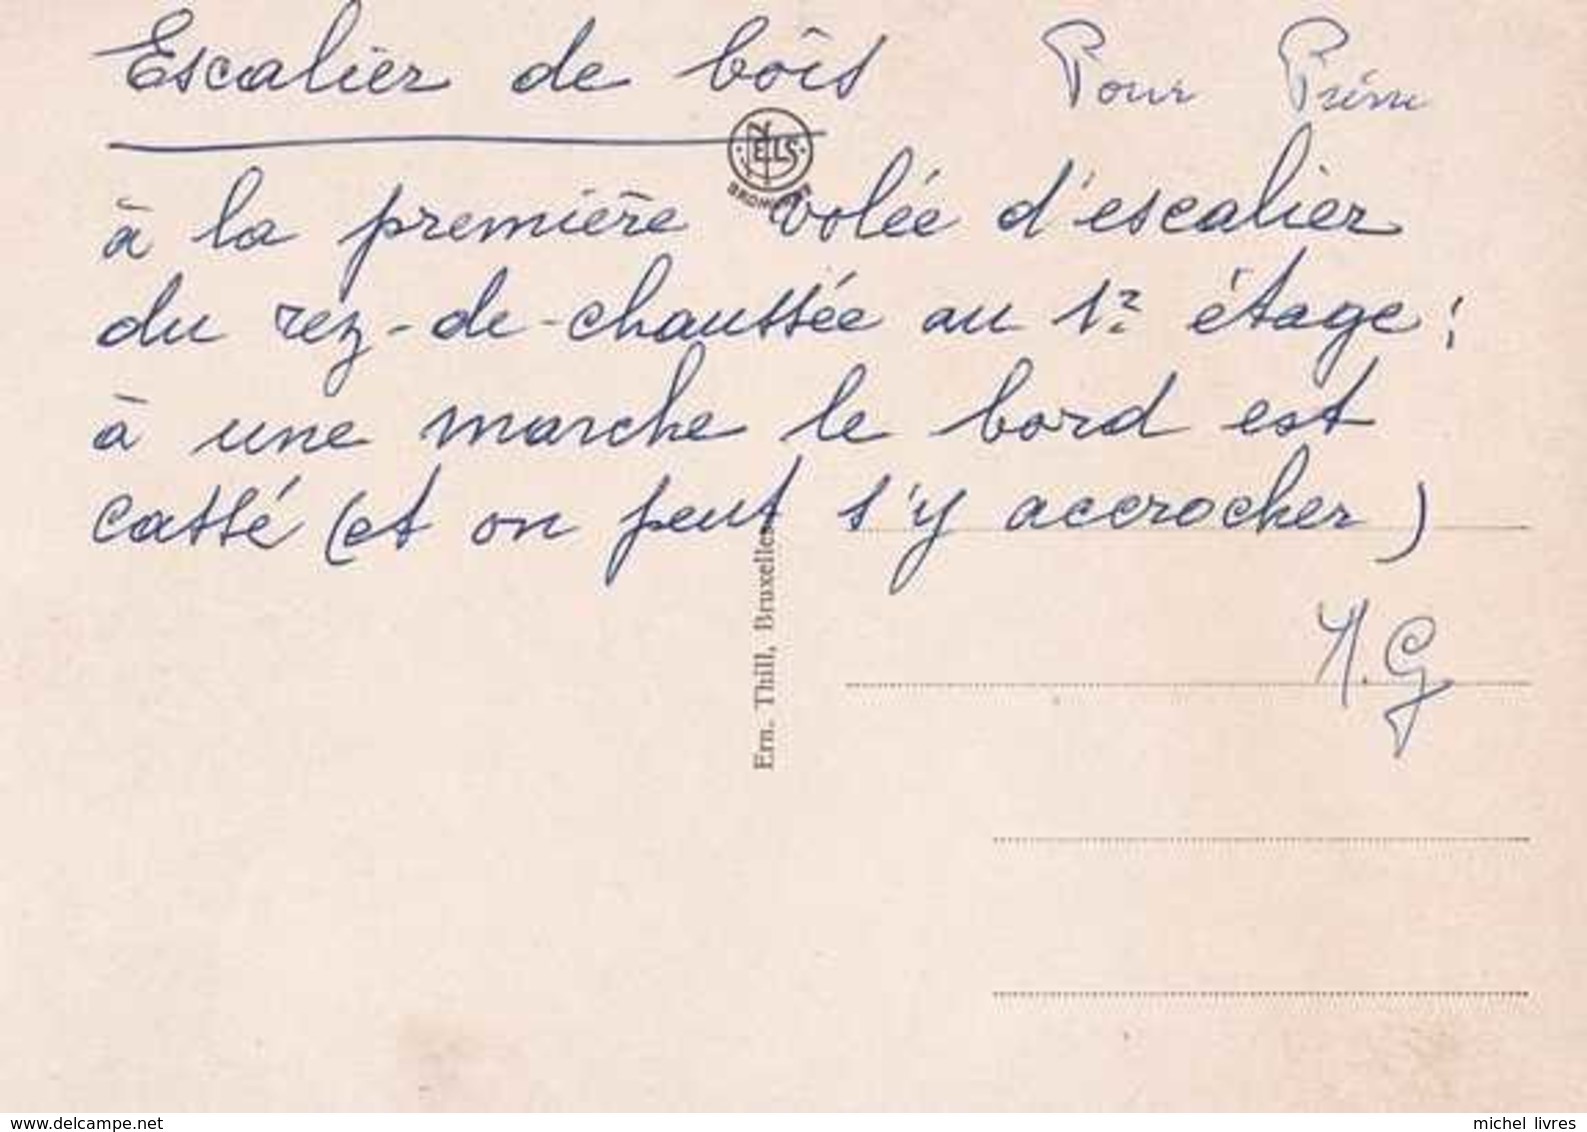 Escalier de bois Pour
à la première volée d'escalier
du rez-de-chaussée au 1? étage :
à une marche le bord est
cassé (et on peut s'y accrocher)
G
NELS
Ern. Thill, Bruxelles
www.delcampe.net
michel livres